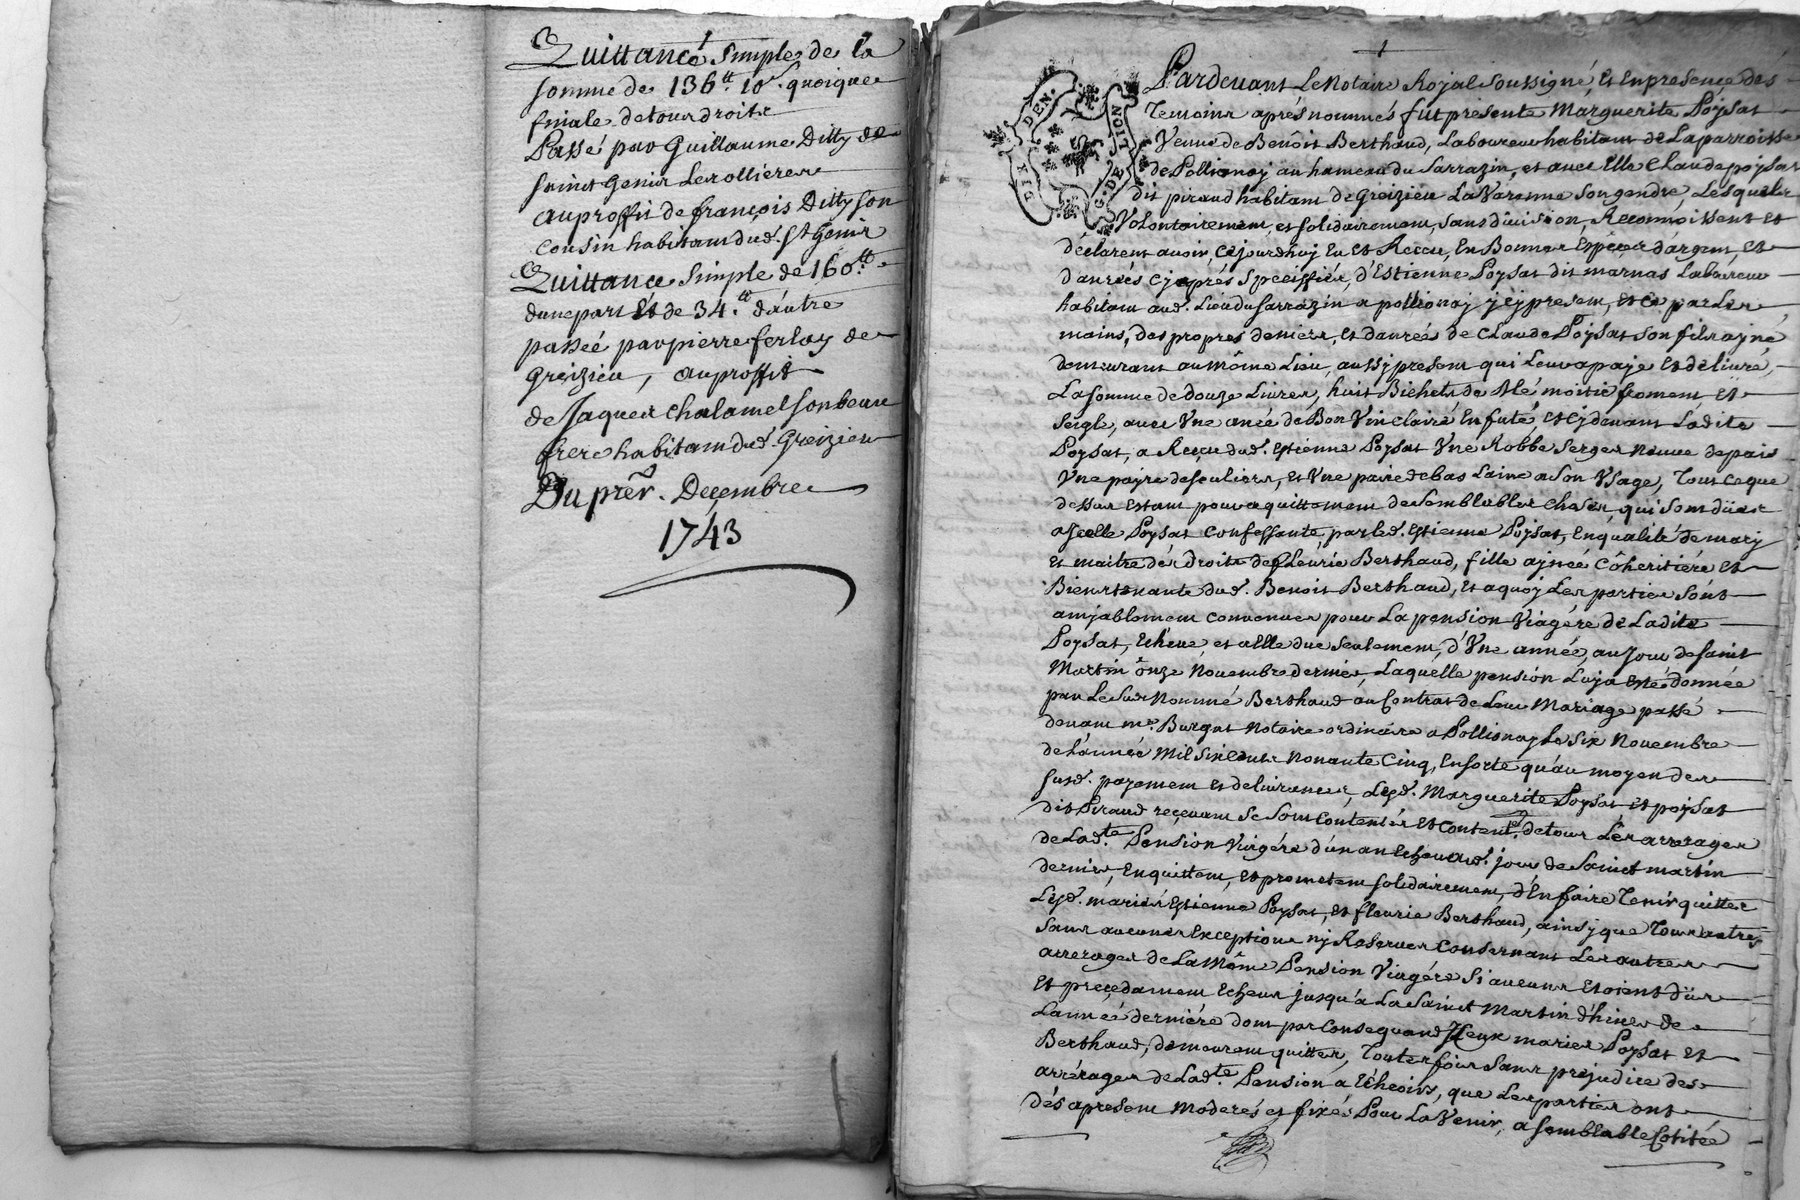 Quittance simple de la
somme de 136tt. 10s. quoique
finale de tous droits
Passé par Guillaume Ditty de
saint Genis Lerollieres
au proffit de françois Ditty son
cousin habitant dud. St Genis
Quittance simple de 160tt.
dune part Et de 34.tt d'autre
passée par pierre ferlay de
Greizieu, au proffit
de Jaques Chalamel son beau
frere habitant dud. Greizieu
Du prer. Decembre
1743
DIX DEN. G. DE LION
Pardevant Le Notaire Royal soussigné, Et En presence des
Temoins aprés nommés fut presente Marguerite Poysat
Veuve de Benôit Berthaud, Laboureur habitant de La parroisse
de Pollionay au hameau du Sarrazin, et avec Elle Claude poysat
dit piraud habitant de Greizieu La Varenne son gendre, Lesquels
Volontairement, et solidairement, sans division, Reconnoissent et
déclarent avoir cejourdhuy Eu et Receu, En Bonnes Espéces d'argent, Et
danrées cy aprés speciffiée, d'Estienne Poysat dit marnas Laboureur
habitant aud. Lieu du Sarrazin a pollionay y cy present, et ce par Les
mains, des propres deniers, et danrées de Claude Poysat son fils ayné
demeurant au même Lieu, aussy present qui Leur a payé Et delivré
La somme de douze Livres, huit Bichets de blé moitié froment Et
seigle, avec Vne anée de Bon Vin clairé En futé, et cy devant Ladite
Poysat, a Receu dud. Estienne Poysat Vne Robbe serge Neuve de pais
Vne payre de souliers, et Vne paire de bas Laine a son Vsage, Tout ce que
dessus Estant pour aquittement de semblables choses, qui sont dües
a Jcelle Poysat confessante, par led. Estienne Poysat, En qualité de mary
Et maitre des droits de fleurie Berthaud, fille aynée Côheritiére Et
Bientenante dud. Benoit Berthaud, Et aquoy Les parties sont
amjablement convenues pour La pension Viagére de Ladite
Poysat, Echeue, et a Elle due seulement, d'Vne année, au Jour de saint
Martin ônze Novembre dernier, Laquelle pension Luy a Eté donnée
par Le susnommé Berthaud au Contrat de Leur Mariage passé
devant me. Burgat Notaire ordinaire a Pollionay Le six Novembre
de L'année Mil six Cents Nonante Cinq, En sorte qu'au moyen des
susd. payement et delivrances, Lesd. Marguerite Poysat et poysat
dit Piraud reçevant se sont contentés Et content. de tous Les arrerages
de Lad.te Pension Viagére d'un an Echeu aud. jour de saint martin
dernier, En quittent, et prometent solidairement, d'En faire Tenir quitte
Lesd. mariés Estienne Poysat, et fleurie Berthaud, ainsy que Tous autres
sans aucunes Exceptions ny Reserves conservant Les autres
arrerages de La Même Pension Viagére si aucuns Etoient düs
Et precedament Echeus jusqu'à La saint Martin d'hiver de
L'année derniére dont par Consequand Jceux mariés Poysat et
Berthaud, demeurent quittes, Toutes fois sans prejudice des
arrérages de Lad.te Pension a Echeoir, que Les parties ont
dés apresent moderés et fixés Pour L'avenir, a semblable Cotitée